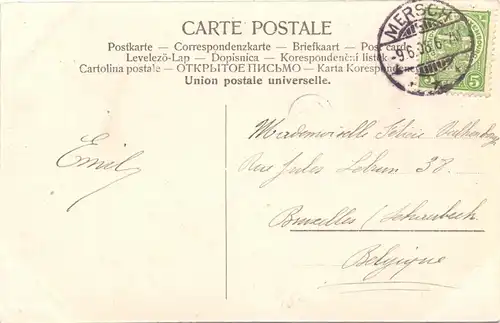 CARTE POSTALE
Postkarte — Correspondenzkarte — Briefkaart — Post card
Levelező-Lap — Dopisnica — Korespondenční listek
Cartolina postale — ОТКРЫТОЕ ПИСЬМО — Karta Korespondenc
Union postale universelle.
MERSCH
5
Emil
Mademoiselle
Rue Jules Lebrun 38.
Bruxelles / Schaerbeek
Belgique